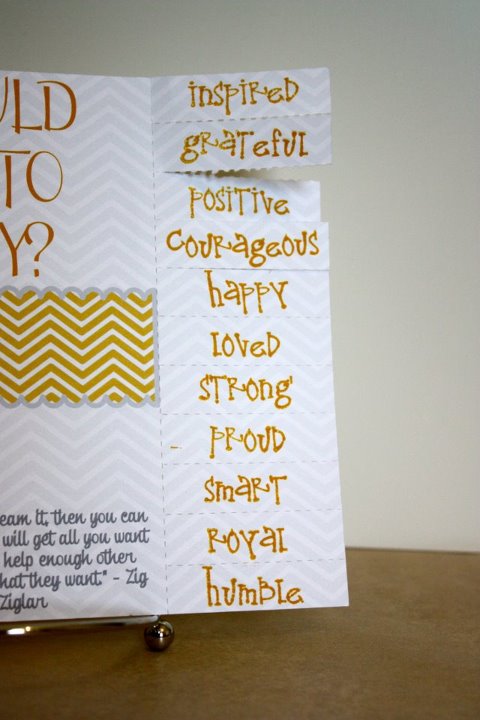 ULD
TO
Y?
eam it, then you can
will get all you want
help enough other
hat they want." - Zig
Ziglar
inspired
grateful
positive
courageous
happy
loved
strong
proud
smart
royal
humble